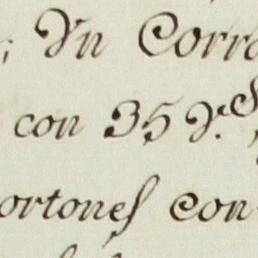 ; Yn Corra
con 35 Y.s
ortones con